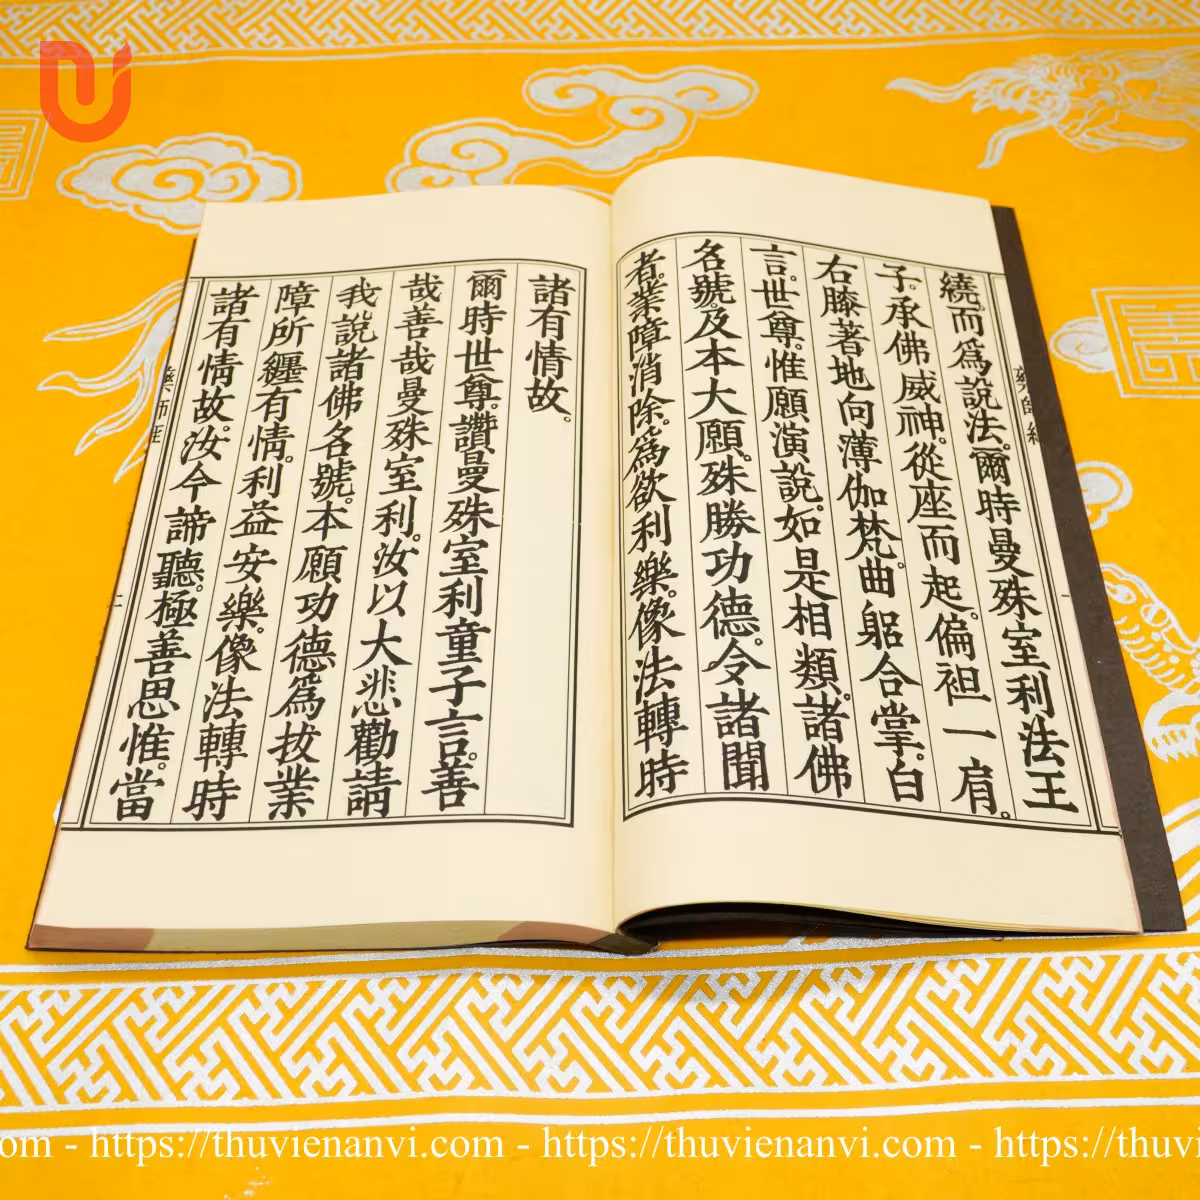 繞。而爲說法。爾時曼殊室利法王
子。承佛威神。從座而起。偏袒一肩。
右膝著地向薄伽梵。曲躬合掌。白
言。世尊。惟願演說。如是相類。諸佛
名號。及本大願。殊勝功德。令諸聞
者。業障消除。爲欲利樂。像法轉時
諸有情故。
爾時世尊。讚曼殊室利童子言。善
哉善哉曼殊室利。汝以大悲勸請
我說諸佛名號。本願功德爲拔業
障所纏有情。利益安樂。像法轉時
諸有情故。汝今諦聽。極善思惟。當
https://thuvienanvi.com - https://thuvienanvi.com